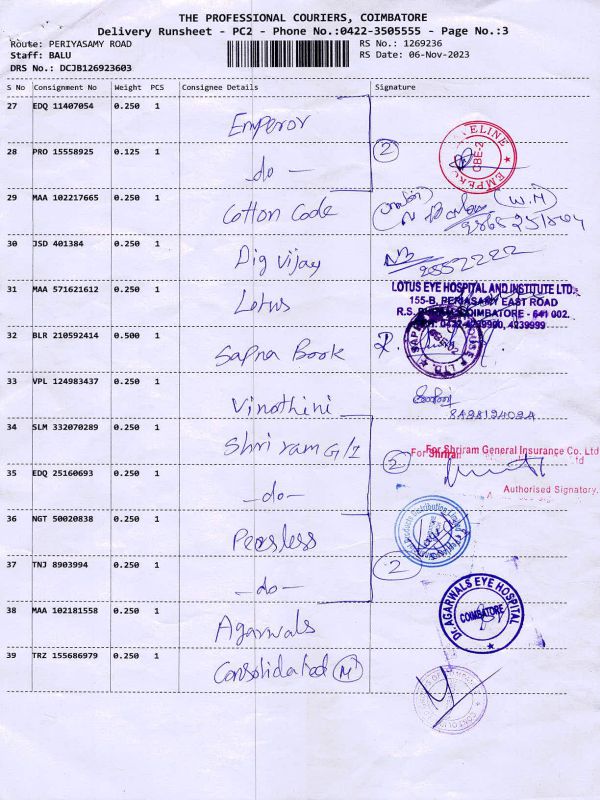 THE PROFESSIONAL COURIERS, COIMBATORE
Delivery Runsheet - PC2 - Phone No.:0422-3505555 - Page No.:3
Route: PERIYASAMY ROAD RS No.: 1269236
Staff: BALU RS Date: 06-Nov-2023
DRS No.: DCJB126923603
S No Consignment No Weight PCS Consignee Details Signature
27 EDQ 11407054 0.250 1 Emperor
28 PRO 15558925 0.125 1 - do - 2
29 MAA 102217665 0.250 1 Cotton Code (W.M)
30 JSD 401384 0.250 1 Dig vijay
31 MAA 571621612 0.250 1 Lotus
LOTUS EYE HOSPITAL AND INSTITUTE LTD.
155-B, PERIASAMY EAST ROAD
R.S. PURAM, COIMBATORE - 641 002.
PH: 0422-4239900, 4239999
32 BLR 210592414 0.500 1 Sapna Book
33 VPL 124983437 0.250 1 Vinothini
34 SLM 332070289 0.250 1 Shri ram G/I 2
For Shriram General Insurance Co. Ltd
Authorised Signatory.
35 EDQ 25160693 0.250 1 - do -
36 NGT 50020838 0.250 1 Peerless
37 TNJ 8903994 0.250 1 - do - 2
38 MAA 102181558 0.250 1 Agarwals
DR. AGARWALS EYE HOSPITAL
COIMBATORE
39 TRZ 155686979 0.250 1 Consolidated (M)